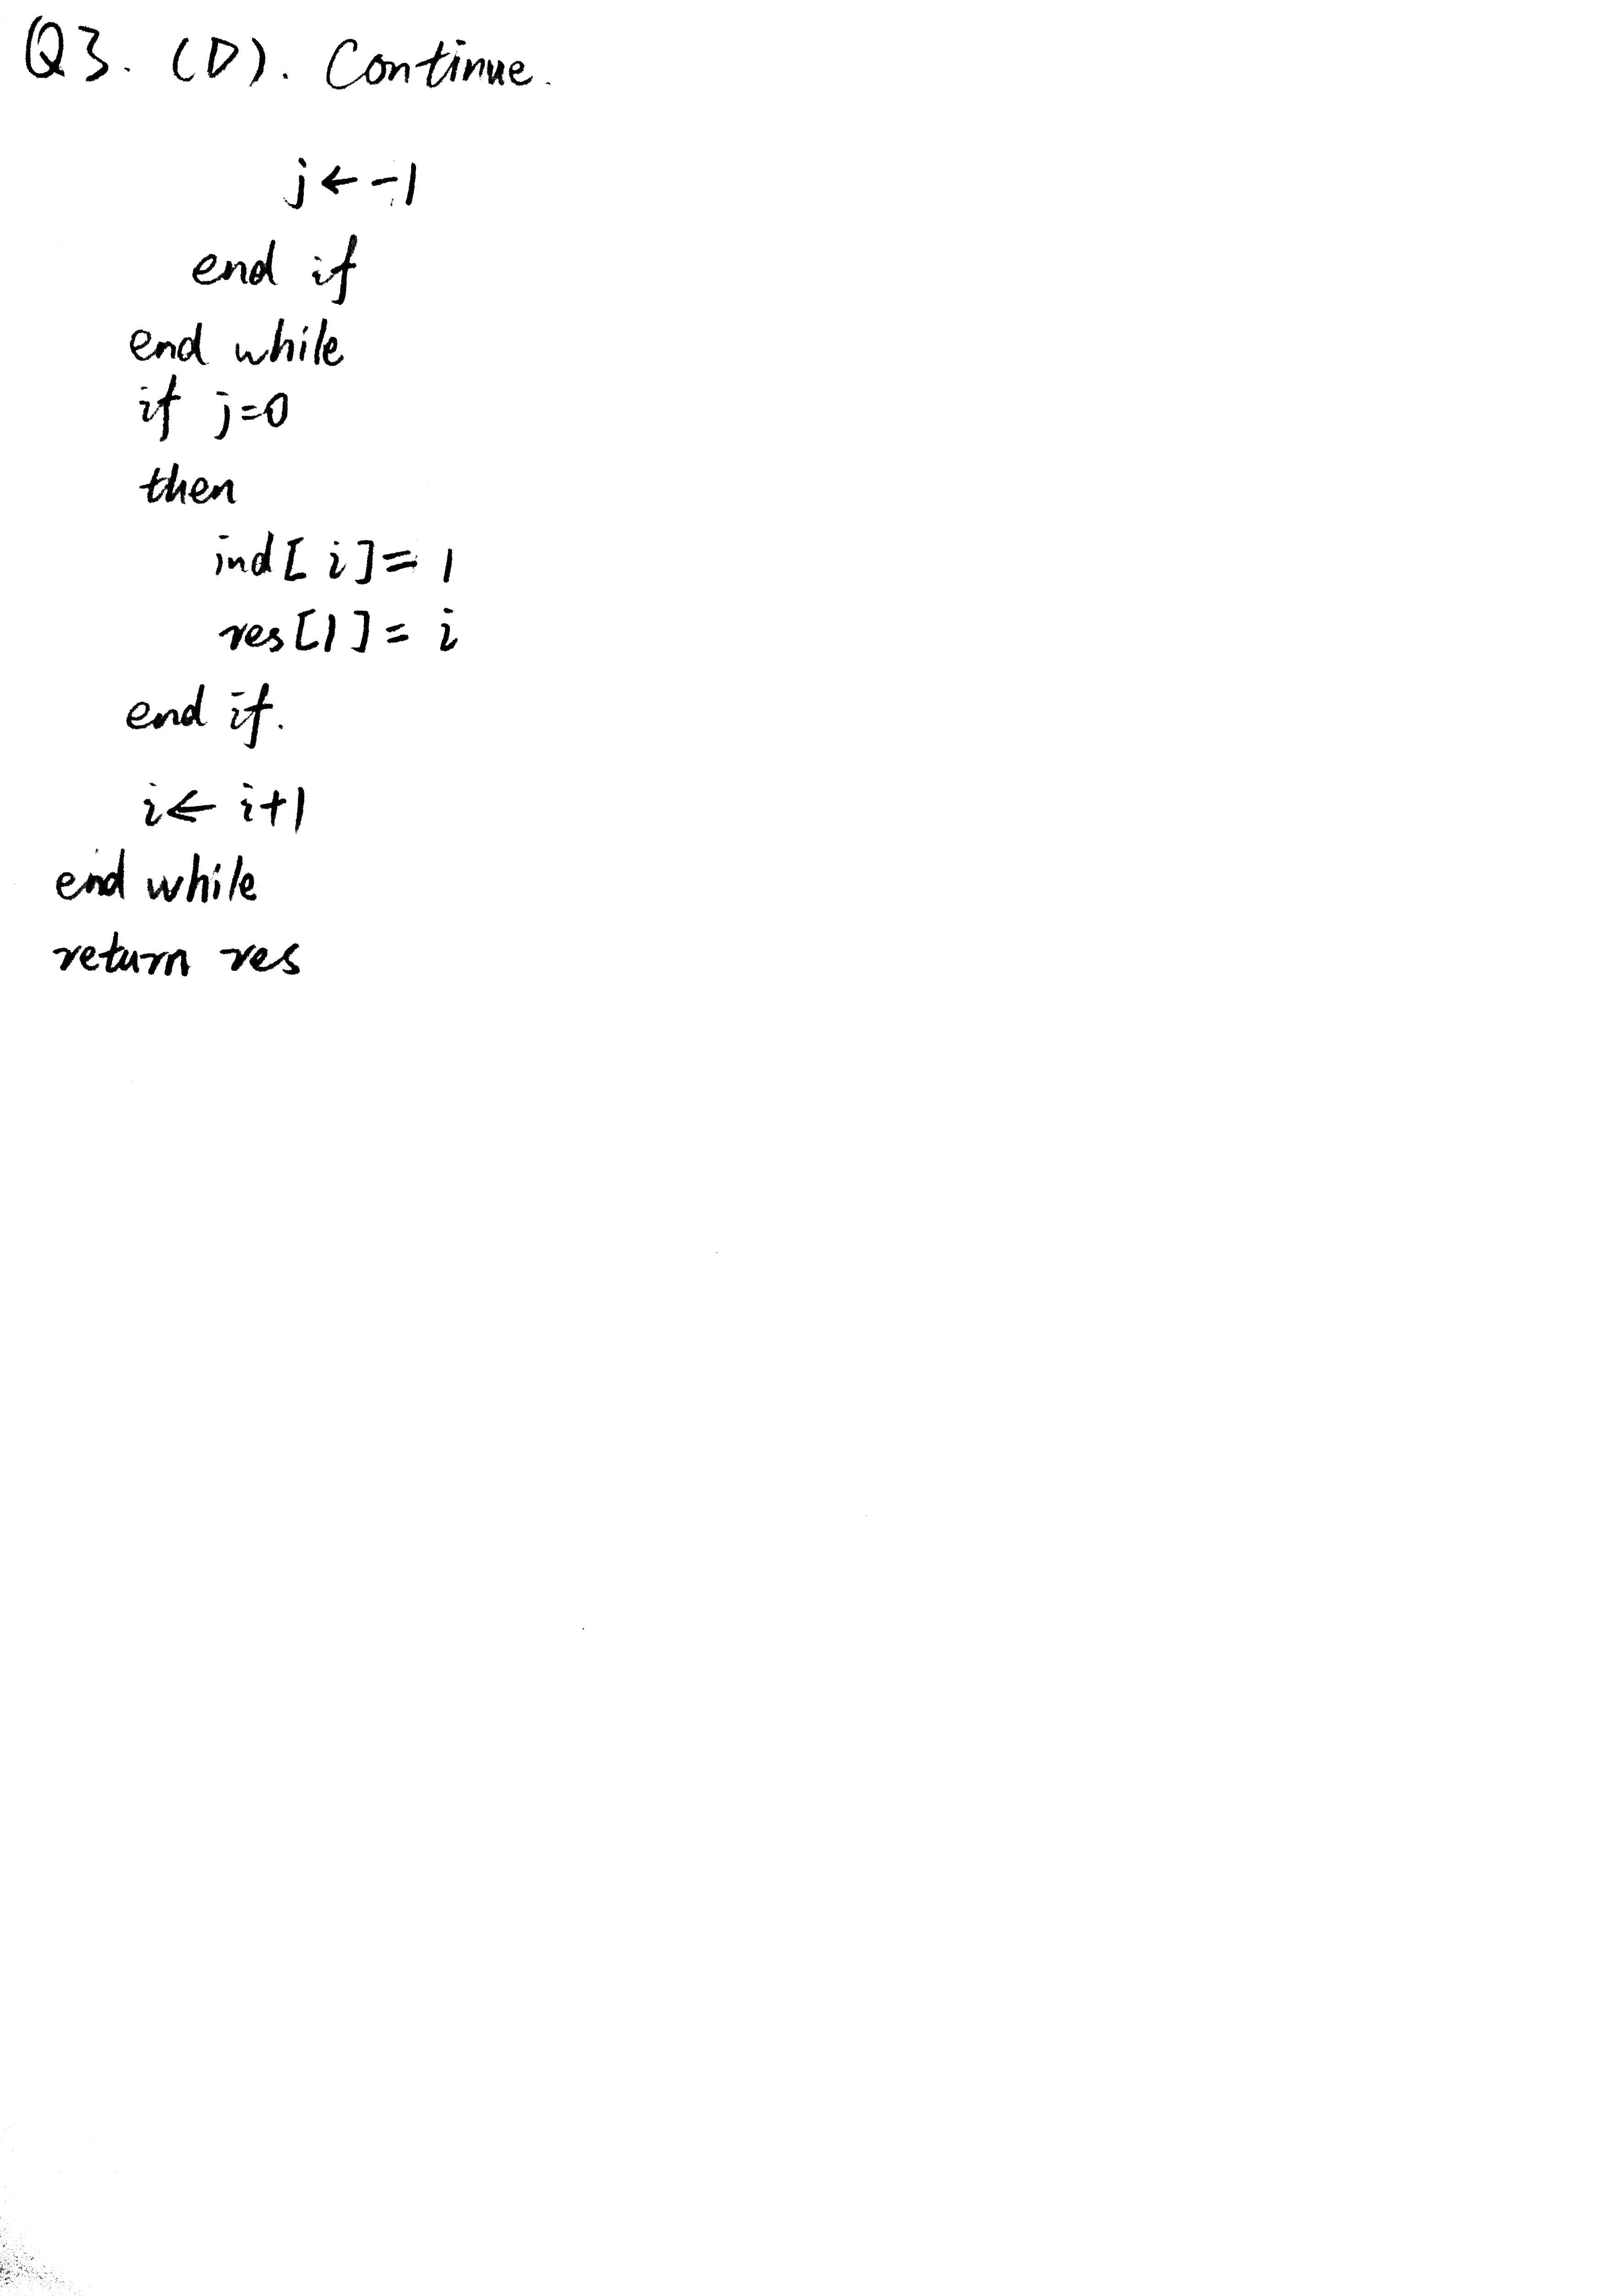 Q3. (D). Continue.
j ← -1
end if
end while
if j=0
then
ind[i]= 1
res[1]= i
end if.
i ← i+1
end while
return res